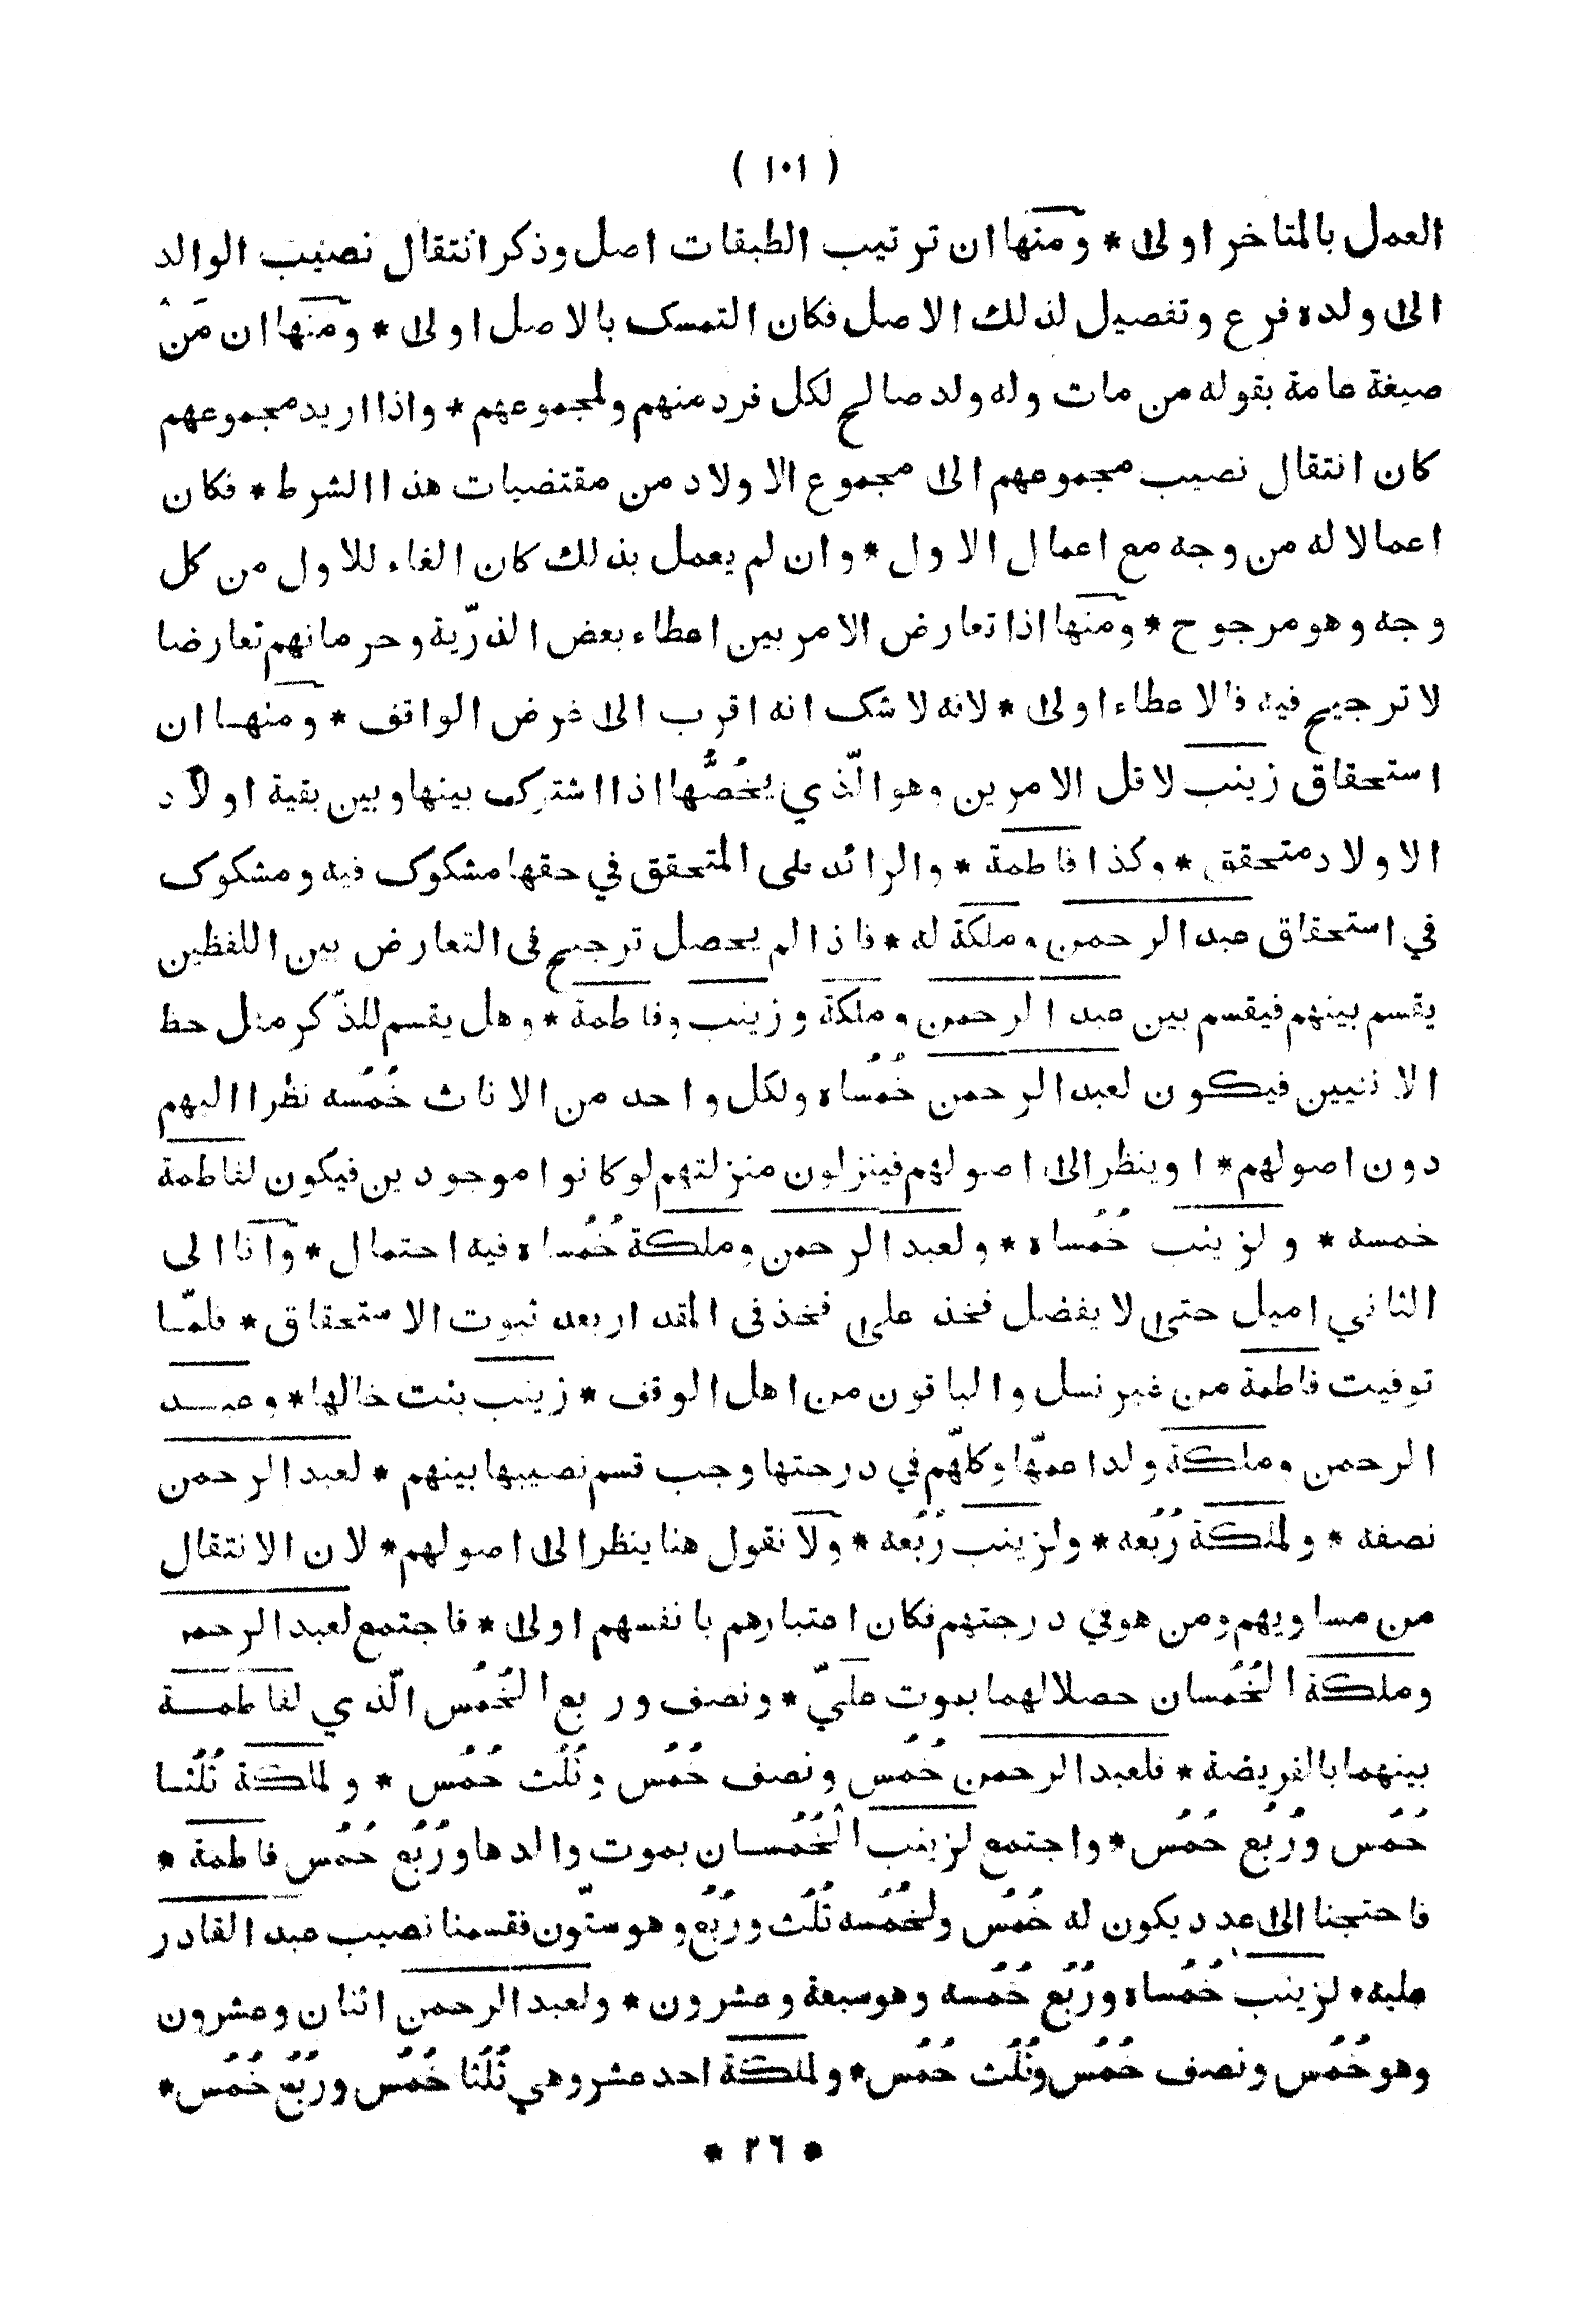 ( ١٠١ )
العمل بالمتاخر اولى * ومنها ان ترتيب الطبقات اصل وذكر انتقال نصيب الوالد
الى ولده فرع وتفصيل لذلك الاصل فكان التمسك بالاصل اولى * ومنها ان مَنْ
صيغة عامة بقوله من مات وله ولد صالح لكل فرد منهم ولمجموعهم * واذا اريد مجموعهم
كان انتقال نصيب مجموعهم الى مجموع الاولاد من مقتضيات هذا الشرط * فكان
اعمالا له من وجه مع اعمال الاول * وان لم يعمل بذلك كان الغاء للاول من كل
وجه وهو مرجوح * ومنها اذا تعارض الامر بين اعطاء بعض الذرّية وحرمانهم تعارضا
لا ترجيح فيه فالاعطاء اولى * لانه لا شك انه اقرب الى غرض الواقف * ومنها ان
استحقاق زينب لاقل الامرين وهو الّذي يخُصُّها اذا اشترك بينها وبين بقية اولاد
الاولاد متحقق * وكذا فاطمة * والزائد على المتحقق في حقها مشكوك فيه ومشكوك
في استحقاق عبد الرحمن وملكة له * فاذا لم يحصل ترجيح في التعارض بين اللفظين
يقسم بينهم فيقسم بين عبد الرحمن وملكة وزينب وفاطمة * وهل يقسم للذّكر مثل حظ
الانثيين فيكون لعبد الرحمن خُمُساه ولكل واحد من الاناث خُمُسه نظرا اليهم
دون اصولهم * او ينظر الى اصولهم فينزلون منزلتهم لو كانوا موجودين فيكون لفاطمة
خمسه * ولزينب خُمُساه * ولعبد الرحمن وملكة خُمُساه فيه احتمال * وانا الى
الثاني اميل حتى لا يفضل فخذ على فخذ في المقدار بعد ثبوت الاستحقاق * فلمّا
توفيت فاطمة من غير نسل والباقون من اهل الوقف * زينب بنت خالها * وعبد
الرحمن وملكة ولدا عمّها وكلّهم في درجتها وجب قسم نصيبها بينهم * لعبد الرحمن
نصفه * ولملكة رُبُعه * ولزينب رُبُعه * ولا نقول هنا ينظر الى اصولهم * لان الانتقال
من مساويهم ومن هو في درجتهم فكان اعتبارهم بانفسهم اولى * فاجتمع لعبد الرحمن
وملكة الخُمُسان حصلا لهما بموت عليّ * ونصف وربع الخُمُس الّذي لفاطمة
بينهما بالفريضة * فلعبد الرحمن خُمُس ونصف خُمُس وثُلُث خُمُس * ولملكة ثُلُثا
خُمُس ورُبُع خُمُس * واجتمع لزينب الخُمُسان بموت والدها ورُبُع خُمُس فاطمة *
فاحتجنا الى عدد يكون له خُمُس ولخُمُسه ثُلُث ورُبُع وهو ستّون فقسمنا نصيب عبد القادر
عليه * لزينب خُمُساه ورُبُع خُمُسه وهو سبعة وعشرون * ولعبد الرحمن اثنان وعشرون
وهو خُمُس ونصف خُمُس وثُلُث خُمُس * ولملكة احد عشر وهي ثُلُثا خُمُس ورُبُع خُمُس *
* ٢٦ *